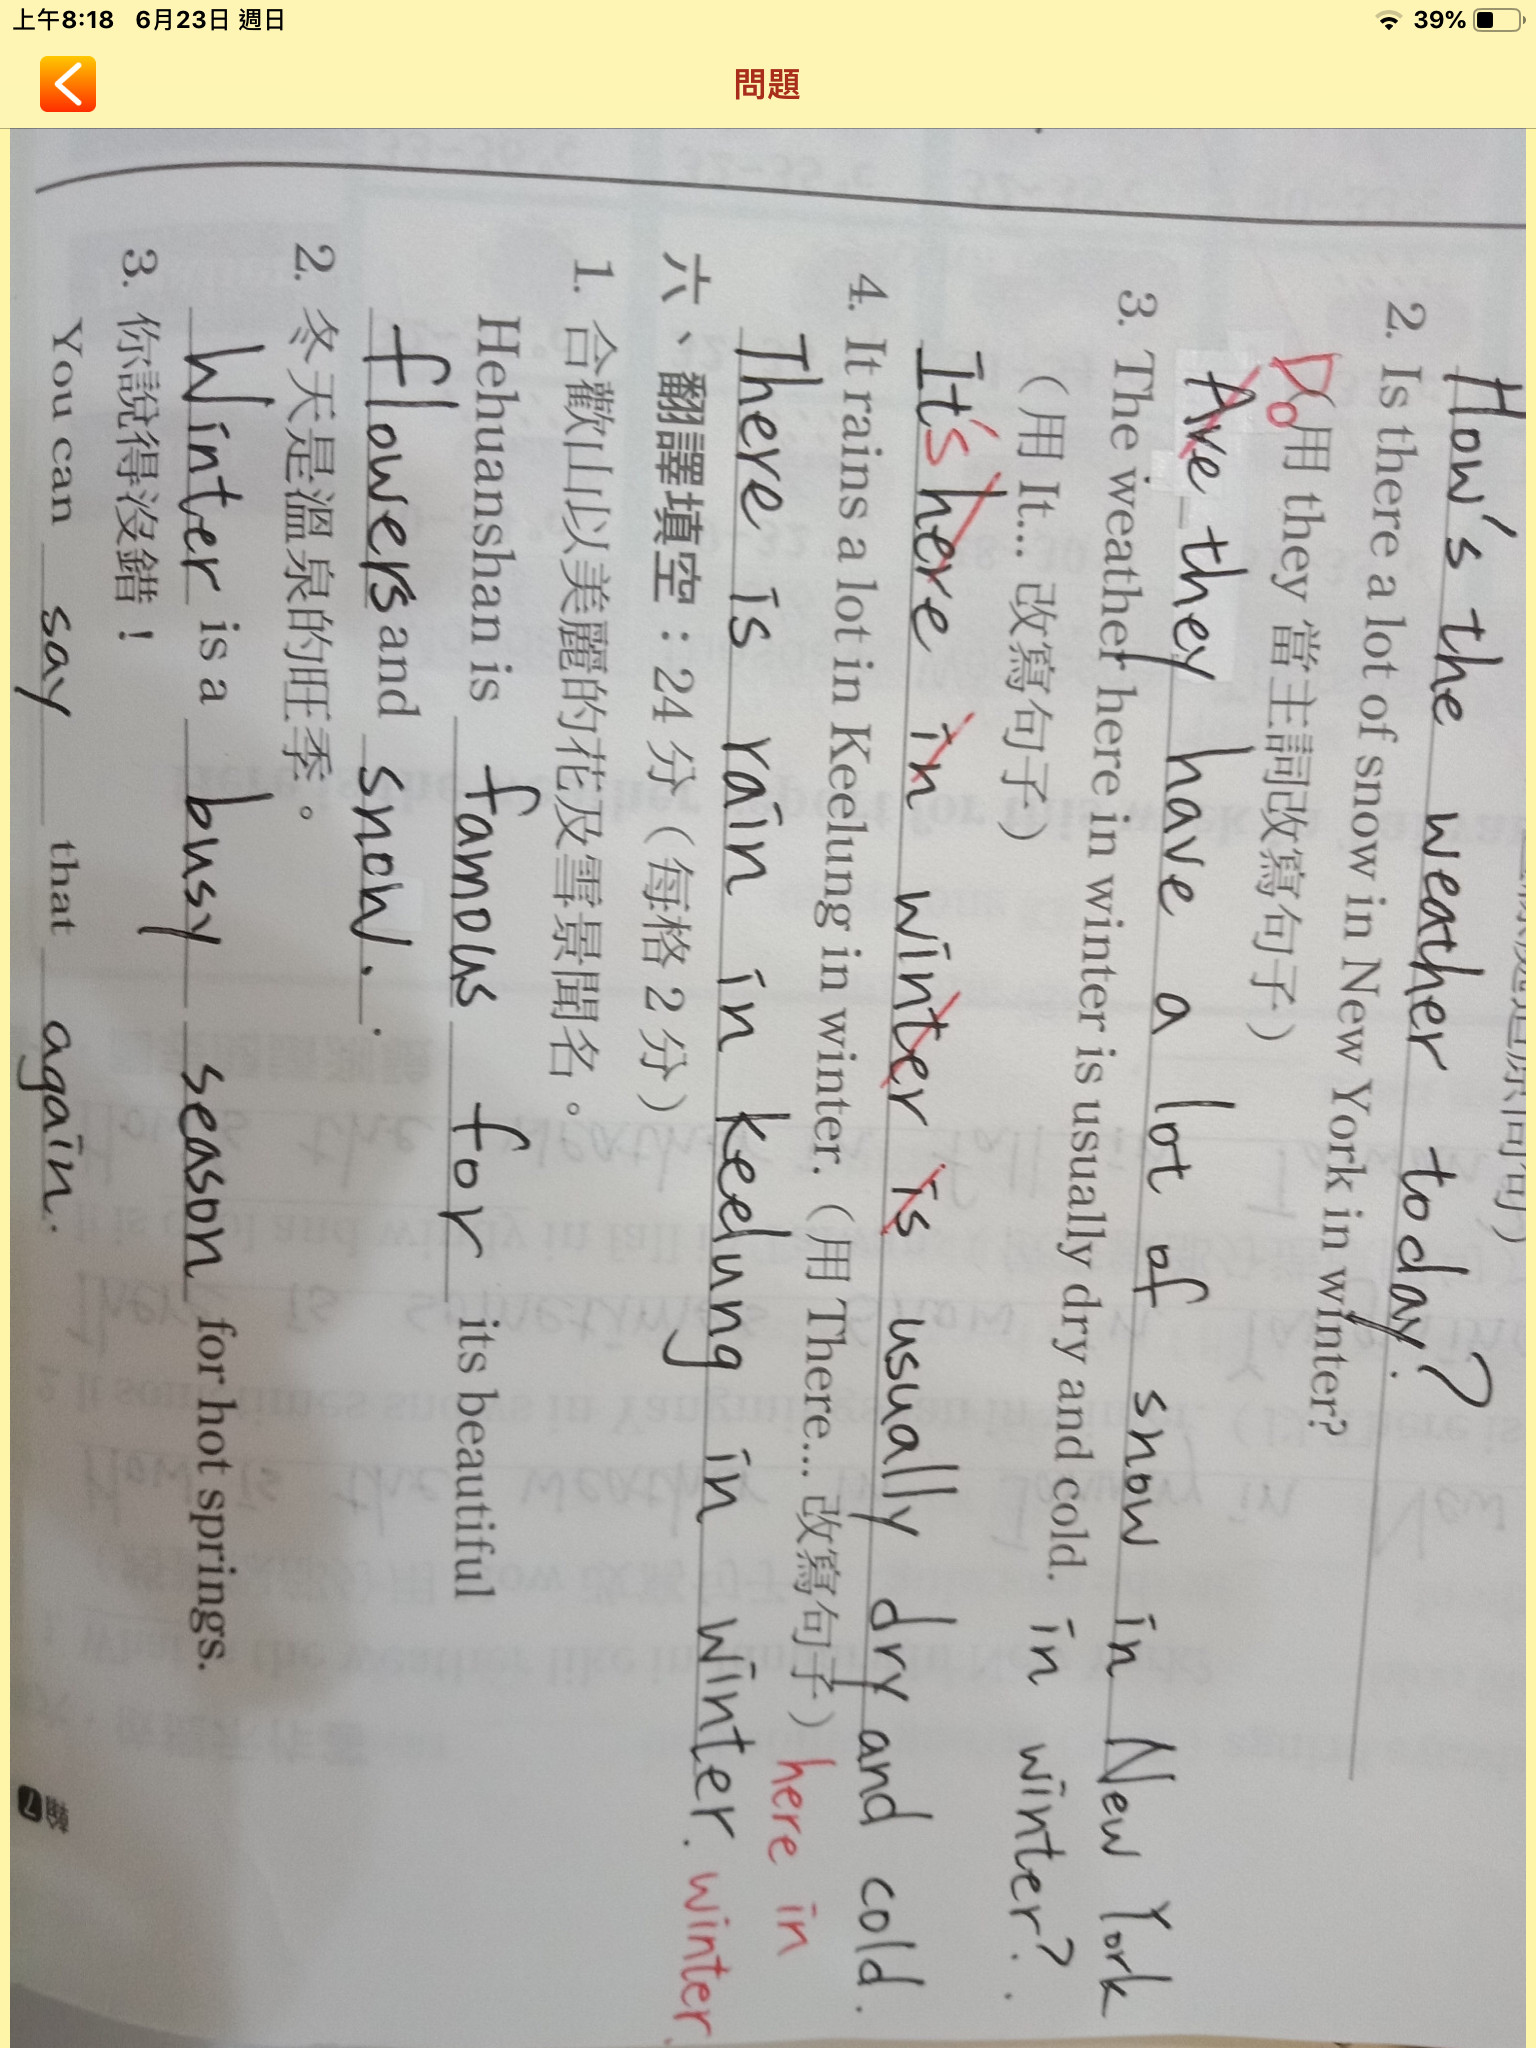 上午8:18 6月23日 週日
39%
問題
How's the weather today?
2. Is there a lot of snow in New York in winter?
Do
（用 they 當主詞改寫句子）
Are they have a lot of snow in New York
in winter?
3. The weather here in winter is usually dry and cold.
（用 It... 改寫句子）
It's here in winter is usually dry and cold.
here in
winter.
4. It rains a lot in Keelung in winter.（用 There... 改寫句子）
There is rain in keelung in winter.
六、翻譯填空：24 分（每格 2 分）
1. 合歡山以美麗的花及雪景聞名。
Hehuanshan is famous for its beautiful
flowers and snow.
2. 冬天是溫泉的旺季。
Winter is a busy season for hot springs.
3. 你說得沒錯！
You can say that again.